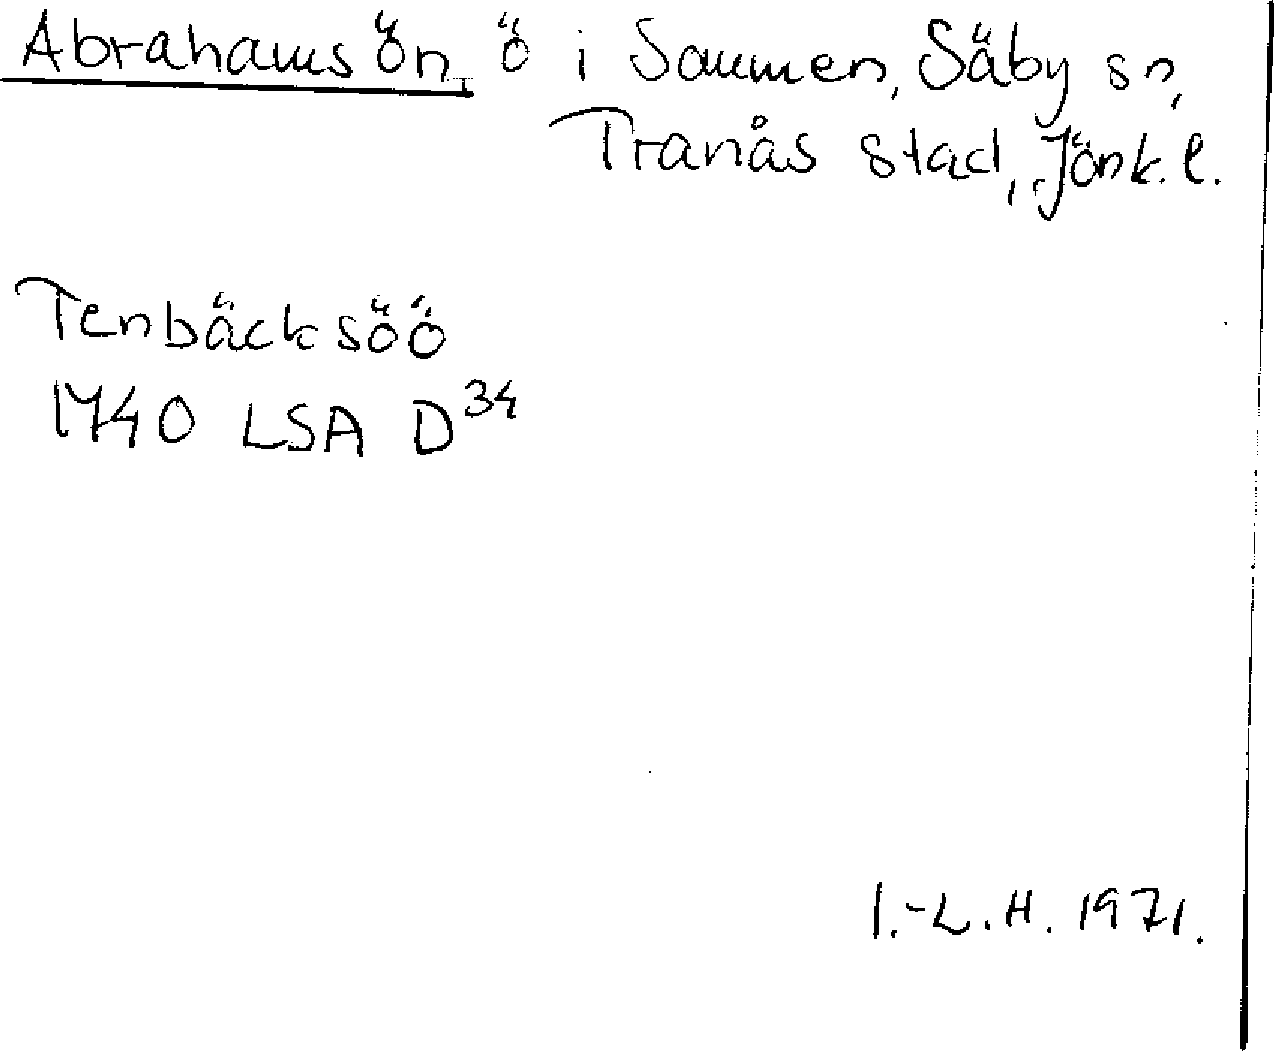 Abrahamsön, ö i Sommen, Säby sn,
Tranås stad, Jönk. l.
Tenbäcksöö
1740 LSA D³⁴
I.-L. H. 1971.